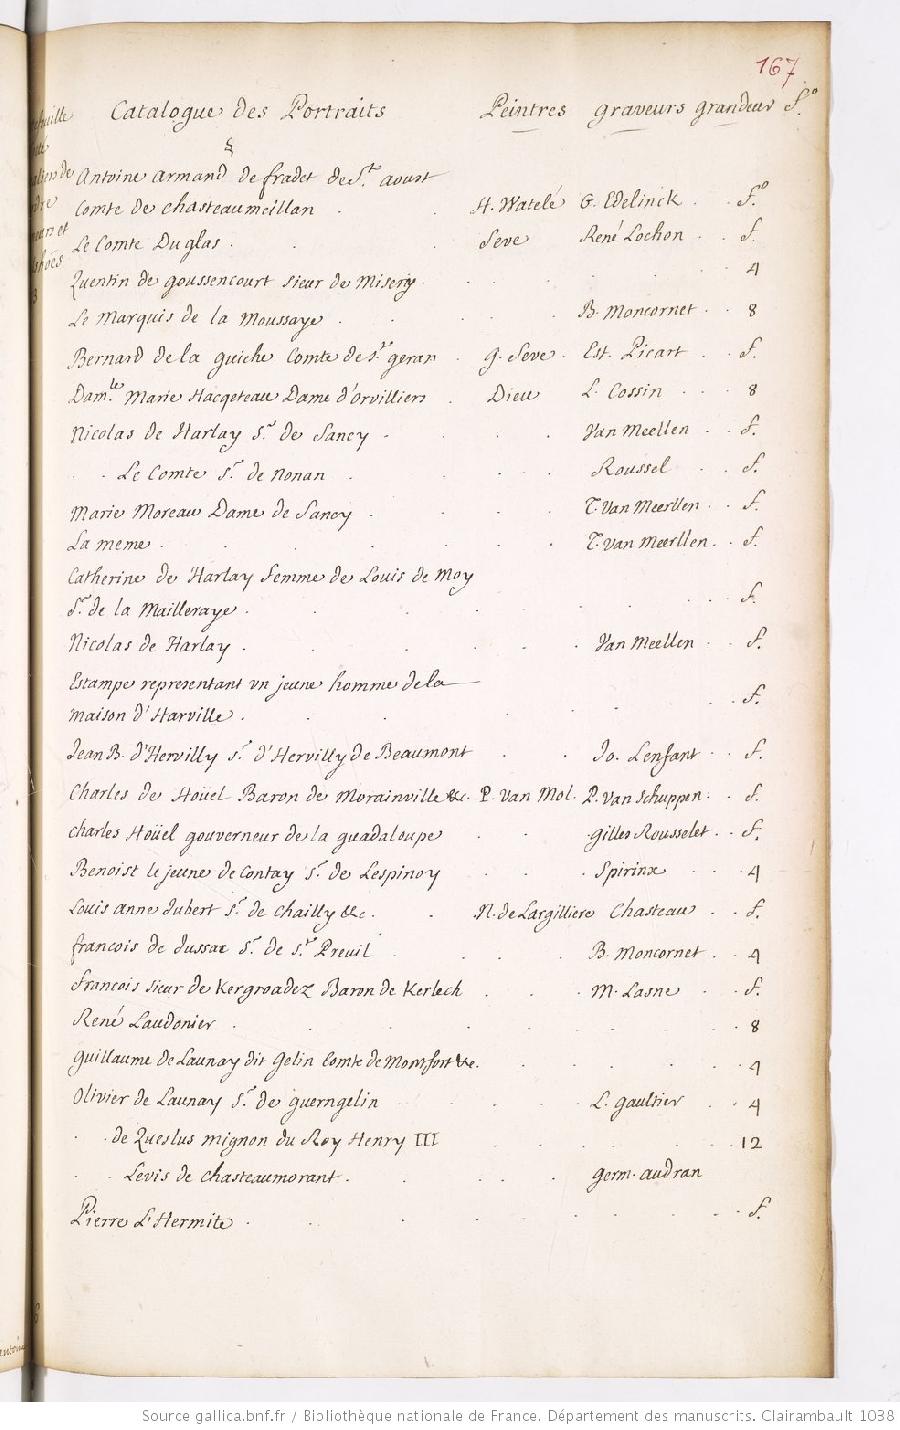 167
Catalogue des Portraits Peintres graveurs grandeur f.º
Antoine armand de fradet de St. aoust
Comte de chasteaumeillan . . H. Watelé G. Edelinck . . f.º
Le Comte Duglas . . . Seve René Lochon . . f.
Quentin de goussencourt sieur de Misery . . . . . 4
Le Marquis de la Moussaye . . . . B. Moncornet . . 8
Bernard de la guiche Comte de St. geran . g. Seve . Est. Picart . . f.
Dam.le Marie Hacqeteau Dame d'orvilliers . Dieu L. Cossin . . . 8
Nicolas de Harlay Sr. de Sancy . . . Van Meellen . . f.
. . Le Comte Sr. de Nonan . . . Roussel . . f.
Marie Moreau Dame de Sancy . . . T. Van Meerllen . . f.
La meme . . . . . . T. Van Meerllen . . f.
Catherine de Harlay femme de Louis de Moy
Sr. de la Mailleraye . . . . . . . f.
Nicolas de Harlay . . . . . . Van Meellen . . f.
Estampe representant vn jeune homme de la
maison d'Harville . . . . . . f.
Jean B. d'Hervilly Sr. d'Hervilly de Beaumont . . Jo. Lenfant . . f.
Charles de Hoüel Baron de Morainville &c. P. Van Mol. P. Van Schuppen . . f.
Charles Hoüel gouverneur de la guadaloupe . . gilles Rousselet . . f.
Benoist le jeune de Contay Sr. de Lespinoy . . . Spirinx . . 4
Louis anne Jubert Sr. de Chailly &c. . N. de Largilliere Chasteau . . f.
francois de Jussac Sr. de St. Preuil . . . B. Moncornet . . 4
francois sieur de Kergroadez Baron de Kerlech . . . M. Lasne . . f.
René Laudonier . . . . . . 8
guillaume de Launay dit gelin Comte de Momfort &c. . . . . . 4
Olivier de Launay Sr. de guerngelin . . . L. gaultier . . 4
. . de Queslus mignon du Roy Henry III . . . . . 12
. . Levis de chasteaumorant . . . . germ. audran
Pierre L'Hermite . . . . . . . f.
Source gallica.bnf.fr / Bibliothèque nationale de France. Département des manuscrits. Clairambault 1038